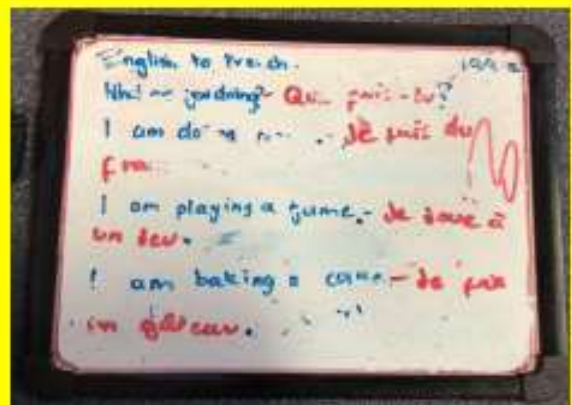 English to French.
What are you doing? - Que fais-tu?
I am doing . - Je fais du
I am playing a game. - Je joue à
un jeu.
I am baking a cake - Je fais
un gâteau.